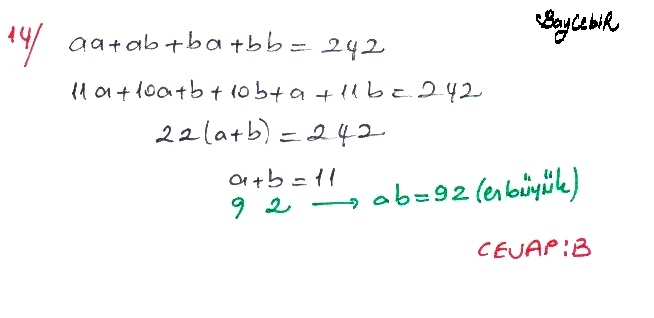 BayCebiR
14/ aa+ab+ba+bb=242
11a+10a+b+10b+a+11b=242
22(a+b)=242
a+b=11
9 2 → ab=92 (en büyük)
CEVAP:B